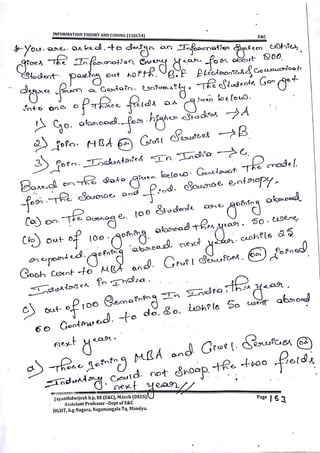 INFORMATION THEORY AND CODING (15EC54) E&C
* You are asked to design an Information System which
gives The Information every year for about 200
student passing out with B.E Electronics & Communication
degree from a Certain University. The Students Can get
into one of Three fields as given below.
1) Go abroad for higher Studies → A
2) Join MBA or Civil Services → B
3) Join Industries In India → C
Based on the data given below. Construct The model
for The Source and find Source entropy.
(a) on The average 100 Students are going abroad
(b) out of 100 going abroad this year. 50 were
reported going abroad next year while 25
Each went to MBA and Civil Services or joined
Industries in India.
c) out of 100 Remaining In India this year.
60 Continued to do so. while 50 went abroad
next year.
d) Those joining MBA and Civil Services or
Industry Could not Swap the two fields
next year//
Jayanthdwijesh h.p, BE (E&C), M.tech (DECS)
Assistant Professor –Dept of E&C
BGSIT, b.g Nagara, Nagamangala Tq, Mandya.
Page 163